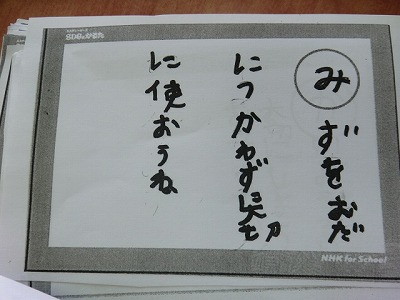 SDGsかるた
みずをむだ
につかわず大切
に使おうね
NHK for School